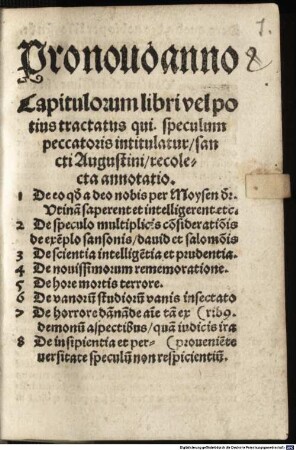 7.
8
Pro nouo anno
Capitulorum libri vel po
tius tractatus qui. speculum
peccatoris intitulatur/san
cti Augustini/recole⸗
cta annotatio.
1 De eo qđ a deo nobis per Moysen dr̄.
Vtinā saperent et intelligerent.etc.
2 De speculo multiplicis cōsideratiōis
de exēplo sansonis/dauid et salomōis
3 De scientia intelligētia et prudentia.
4 De nouissimorum rememoratione.
5 De hore mortis terrore.
6 De vanorū studiorū vanis insectato
7 De horrore dānāde aīe tā ex (ribꝰ.
demonū aspectibus/quā iudicis ira
8 De insipientia et per⸗ (proueniēte
uersitate speculū non respicientiū.